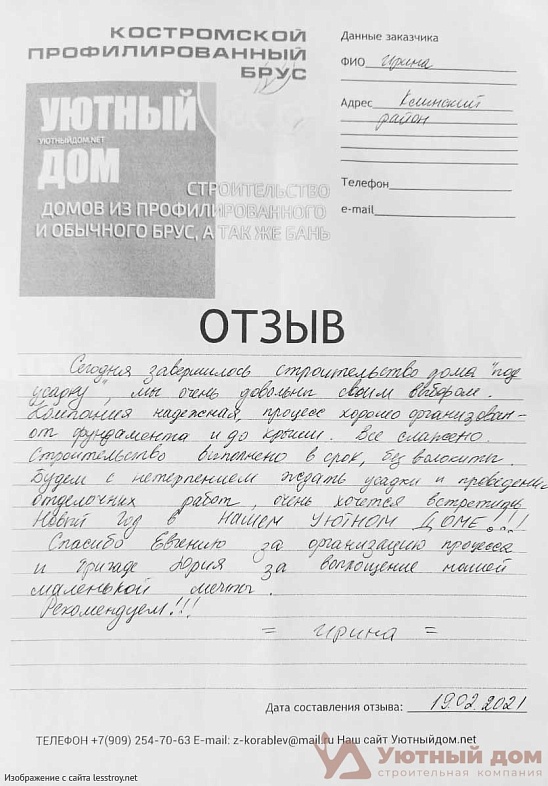 КОСТРОМСКОЙ
ПРОФИЛИРОВАННЫЙ
БРУС
УЮТНЫЙ
УЮТНЫЙДОМ.NET
ДОМ
СТРОИТЕЛЬСТВО
ДОМОВ ИЗ ПРОФИЛИРОВАННОГО
И ОБЫЧНОГО БРУС, А ТАК ЖЕ БАНЬ
Данные заказчика
ФИО Ирина
Адрес Клинский
район
Телефон
e-mail
ОТЗЫВ
Сегодня завершилось строительство дома "под
усадку", мы очень довольны своим выбором.
Компания надежная, процесс хорошо организован-
от фундамента и до крыши. Все слажено.
Строительство выполнено в срок, без волокиты.
Будем с нетерпением ждать усадки и проведения
отделочных работ, очень хочется встретить
Новый Год в НАШЕМ УЮТНОМ ДОМЕ!!!
Спасибо Евгению за организацию процесса
и бригаде Юрия за воплощение нашей
маленькой мечты.
Рекомендуем!!!
= Ирина =
Дата составления отзыва: 19.02.2021
ТЕЛЕФОН +7(909) 254-70-63 E-mail: z-korablev@mail.ru Наш сайт Уютныйдом.net
Уютный дом
строительная компания
Изображение с сайта lesstroy.net